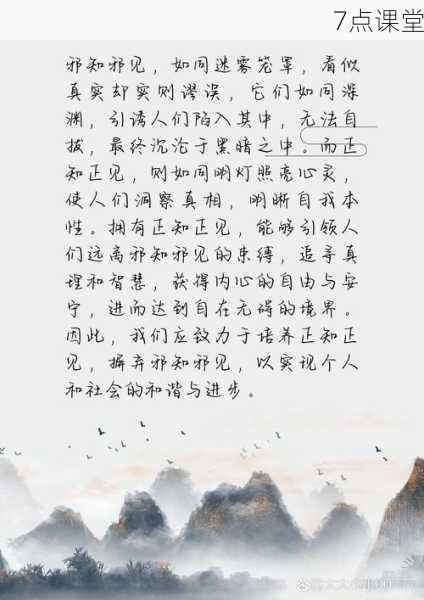 7点课堂
邪知邪见，如同迷雾笼罩，看似
真实却实则谬误，它们如同深
渊，引诱人们陷入其中，无法自
拔，最终沉沦于黑暗之中。而正
知正见，则如同明灯照亮心灵，
使人们洞察真相，明晰自我本
性。拥有正知正见，能够引领人
们远离邪知邪见的束缚，追寻真
理和智慧，获得内心的自由与安
宁，进而达到自在无碍的境界。
因此，我们应致力于培养正知正
见，摒弃邪知邪见，以实现个人
和社会的和谐与进步。